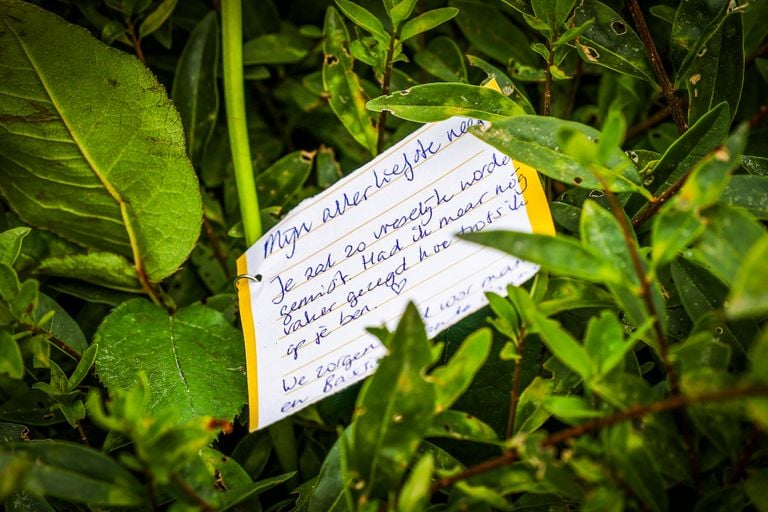 Mijn allerliefste
Je zal zo vreselijk worden
gemist. Had ik maar nog
vaker gezegd hoe trots ik
op je ben. ♡
We zorgen voor
en Bas